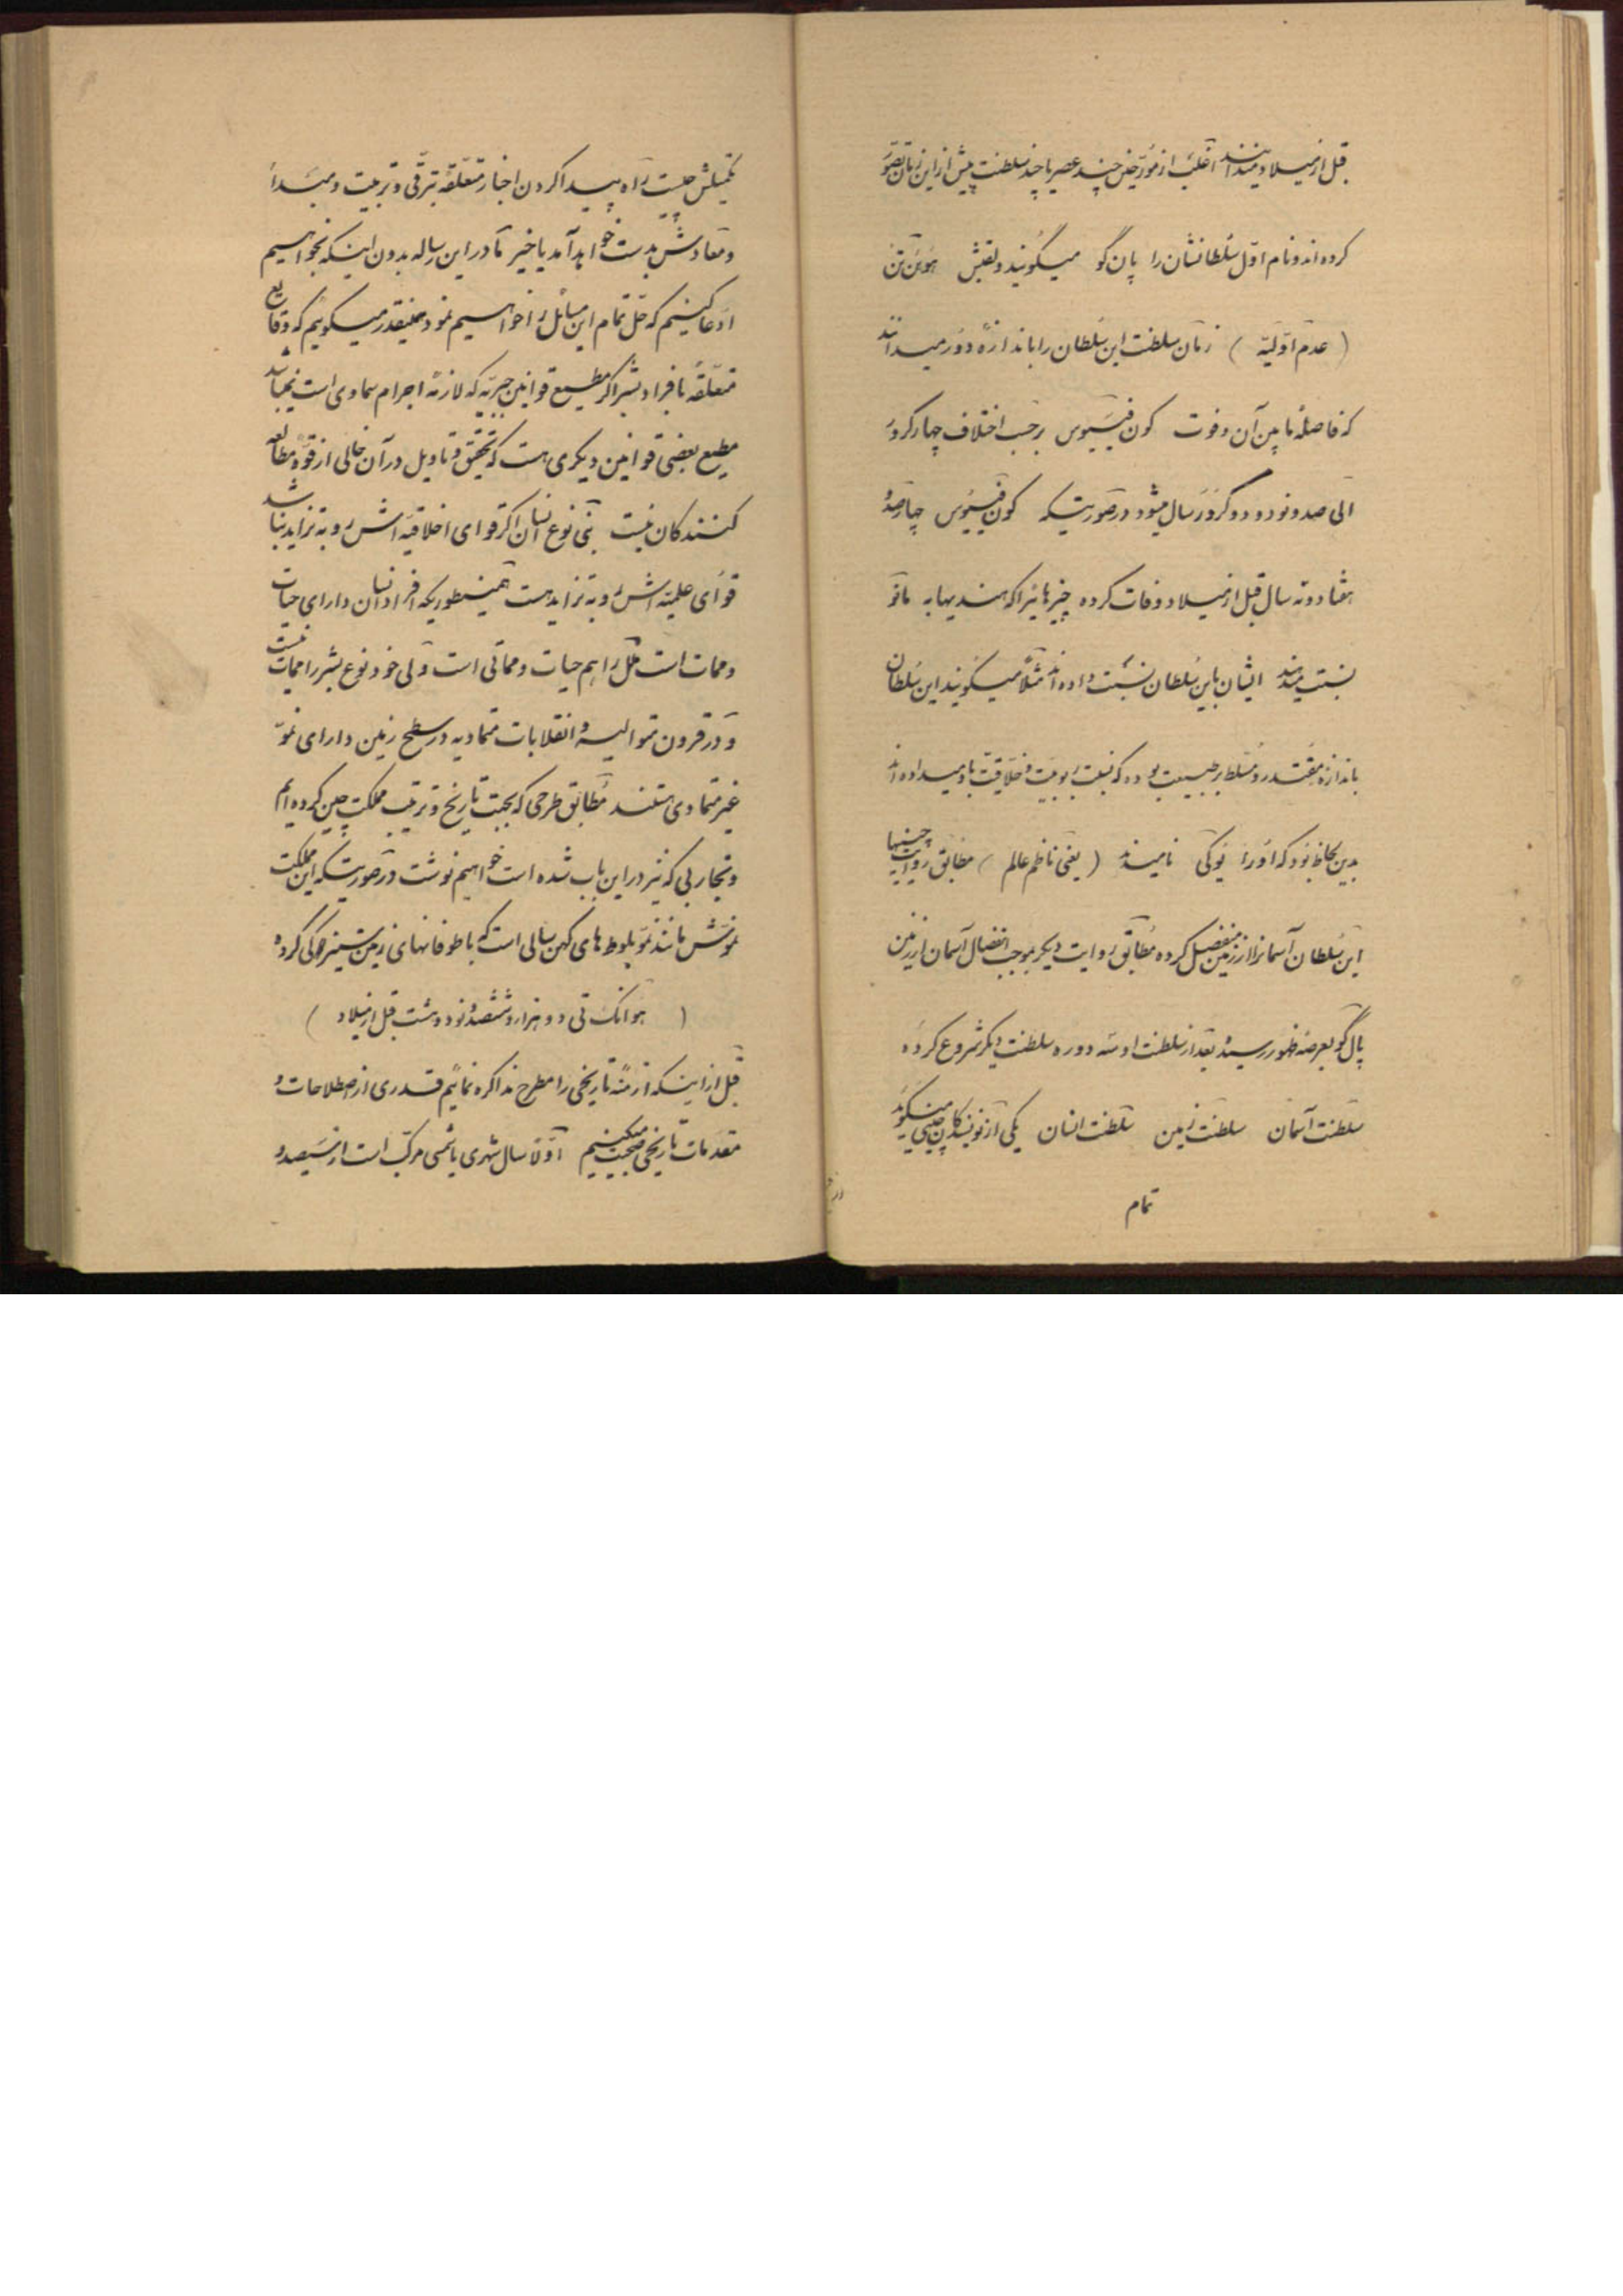 قبل از میلاد میدانند اغلب از مورخین چند عصر یا چند سلطنت پیش از این زمان تصور
کرده‌اند و نام اول سلطانشان را پان گو میگویند و لقبش هوئن تن
( عدم اولیه ) زمان سلطنت این سلطان را باندازهٔ دور میدانند
که فاصلهٔ مابین آن و فوت کون فیسیوس برحسب اختلاف چهار کرور
الی صد و نود و دو کرور سال میشود در صورتیکه کون فیسیوس چهارصد و
هفتاد و نه سال قبل از میلاد وفات کرده چیزهائیرا که هندیها به مانو
نسبت میدهند ایشان باین سلطان نسبت داده‌اند مثلا میگویند این سلطان
باندازه مقتدر و مسلط بر طبیعت بوده که نسبت ربوبیت و خلاقیت باو میداده‌اند
بدین لحاظ بود که او را یوکی نامیدند ( یعنی ناظم عالم ) مطابق روایت چینیها
این سلطان آسمانرا از زمین منفصل کرده مطابق روایت دیگر بموجب انفصال آسمان از زمین
پال گو بعرصهٔ ظهور رسید و بعد از سلطنت او سه دوره سلطنت دیگر شروع کرده
سلطنت آسمان سلطنت زمین سلطنت انسان یکی از نویسندکان چینی میگوید
تمام
تکمیلش چیست راه پیدا کردن اخبار متعلقه بترقی و تربیت و مبدأ
و معادش بدست خواهد آمد یا خیر ما در این رساله بدون اینکه بخواهیم
ادعا کنیم که حل تمام این مسائل را خواهیم نمود همینقدر میگوئیم که وقایع
متعلقه بافراد بشر اگر مطیع قوانین جبریه که لازمهٔ اجرام سماوی است نمیباشد
مطیع بعضی قوانین دیگری هست که تحقیق و تاویل در آن خالی از قوهٔ مطالعه
کنندکان نیست بنی نوع انسان اگر قوای اخلاقیه‌اش رو به تزاید نباشد
قوای علمیه‌اش رو به تزاید هست همینطوریکه افراد انسان دارای حیات
و ممات است ملل را هم حیات و مماتی است ولی خود نوع بشر را ممات نیست
و در قرون متوالیه و انقلابات متمادیه در سطح زمین دارای نمو
غیر متمادی هستند مطابق طرحی که بجهت تاریخ و تربیت مملکت چین کرده‌ایم
و تجاربی که نیز در این باب شده است خواهیم نوشت در صورتیکه این مملکت
نموش مانند نمو بلوط‌های کهن سالی است که با طوفانهای زمین ستیزه‌گی کرده
( هوانک تی دو هزار و ششصد و نود و هشت قبل از میلاد )
قبل از اینکه ازمنهٔ تاریخی را مطرح مذاکره نمائیم قدری از اصطلاحات و
مقدمات تاریخی صحبت میکنیم اولا سال شهری یا شمسی مرکب است از سیصد و